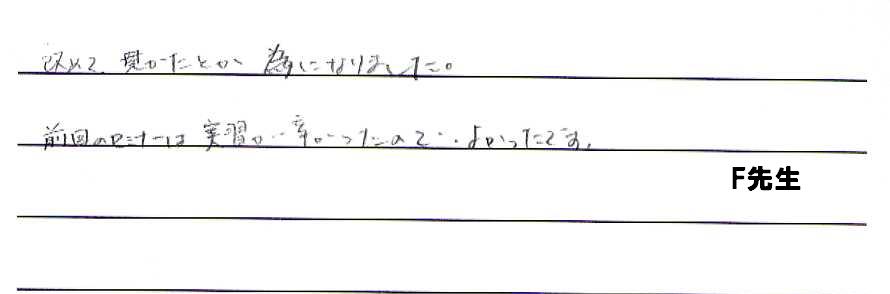 改めて、見かたとか為になりました。
前回のセミナーは実習が多かったのでよかったです。
F先生